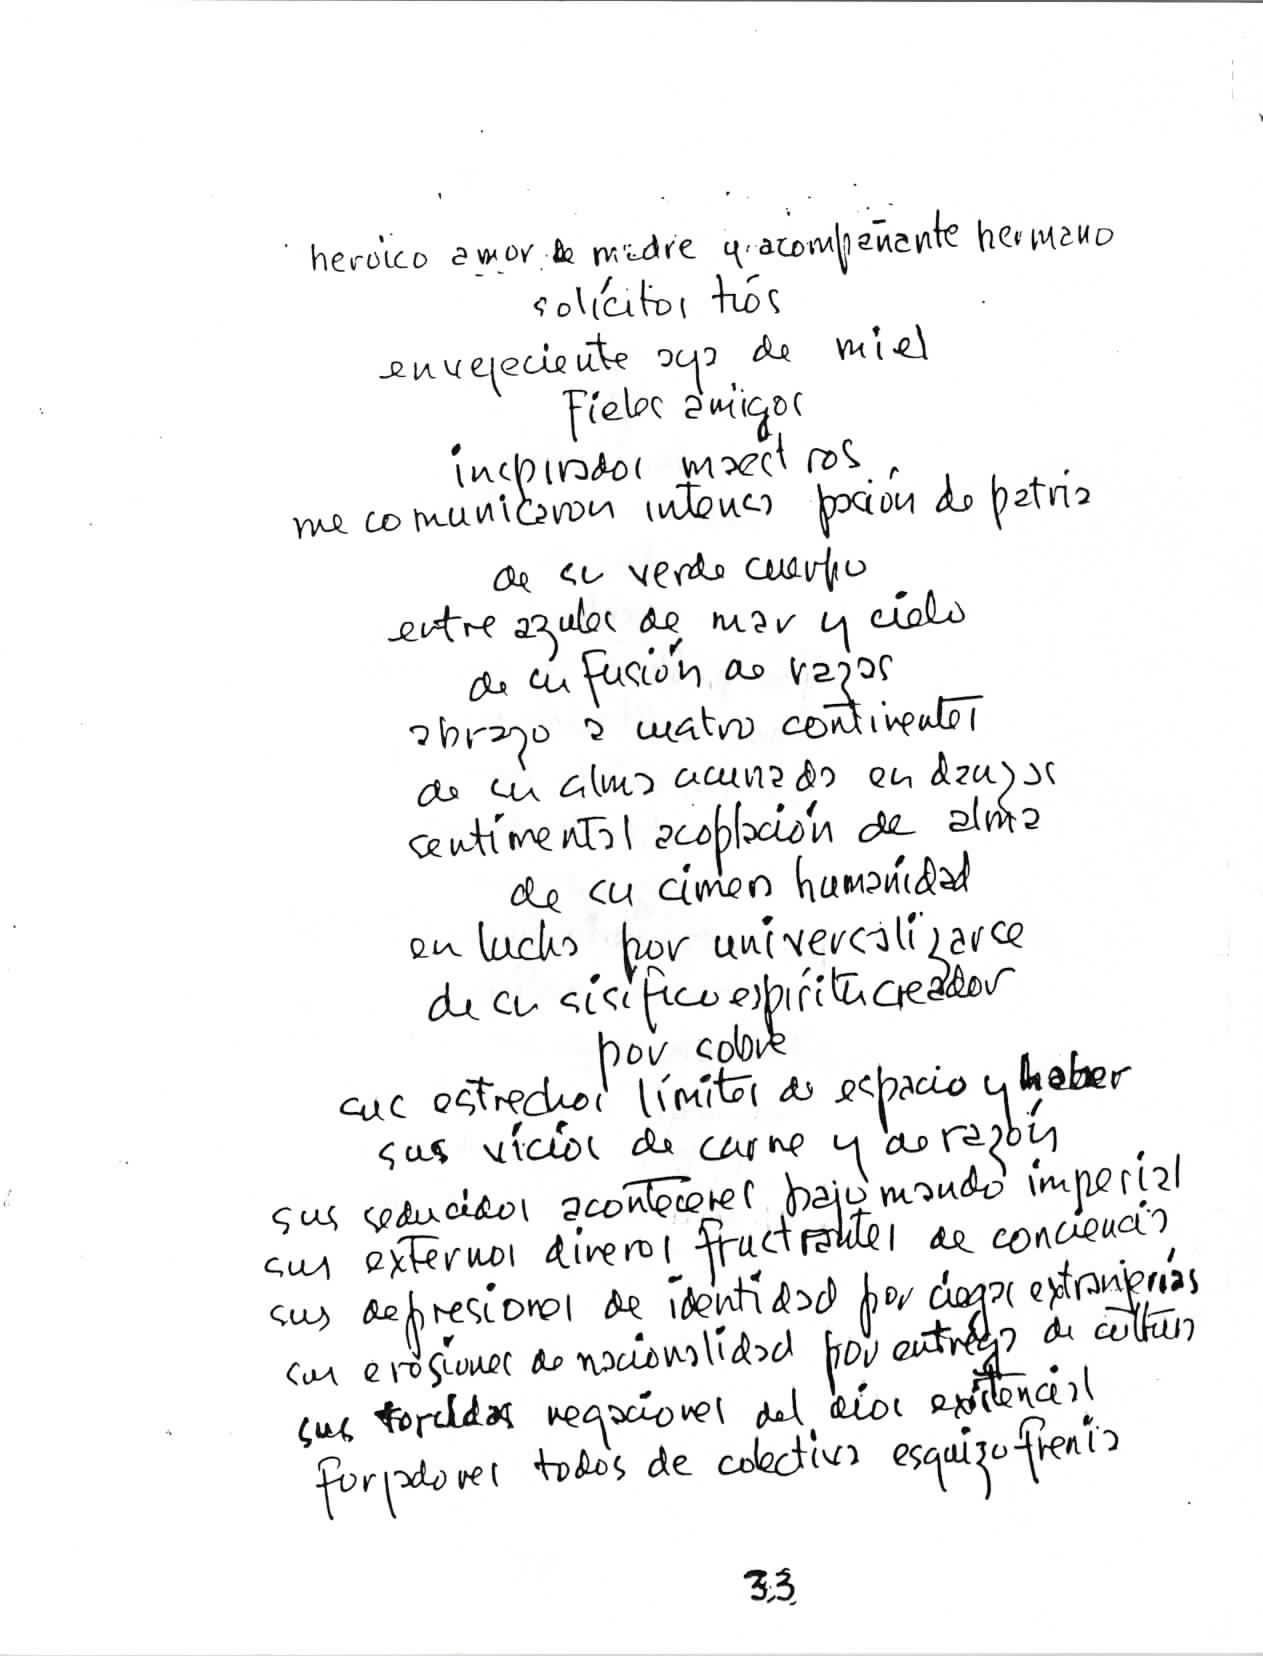 heroico amor de madre y acompañante hermano
solícitos tíos
envejeciente aya de miel
Fieles amigos
inspirados maestros
me comunicaron intensa pasión de patria
de su verde cuerpo
entre azules de mar y cielo
de su fusión de razas
abrazo a cuatro continentes
de su alma acunada en danzas
sentimental acoplación de alma
de su cimera humanidad
en lucha por universalizarse
de su sisífico espíritu creador
por sobre
sus estrechos límites de espacio y haber
sus vicios de carne y de razón
sus seducidos aconteceres bajo mando imperial
sus externos fructrantes de conciencia
sus depresiones de identidad por ciegas extranjerías
sus erosiones de nacionalidad por entrega de cultura
sus torcidas negaciones del existencial
forjadores todos de colectiva esquizofrenia
33